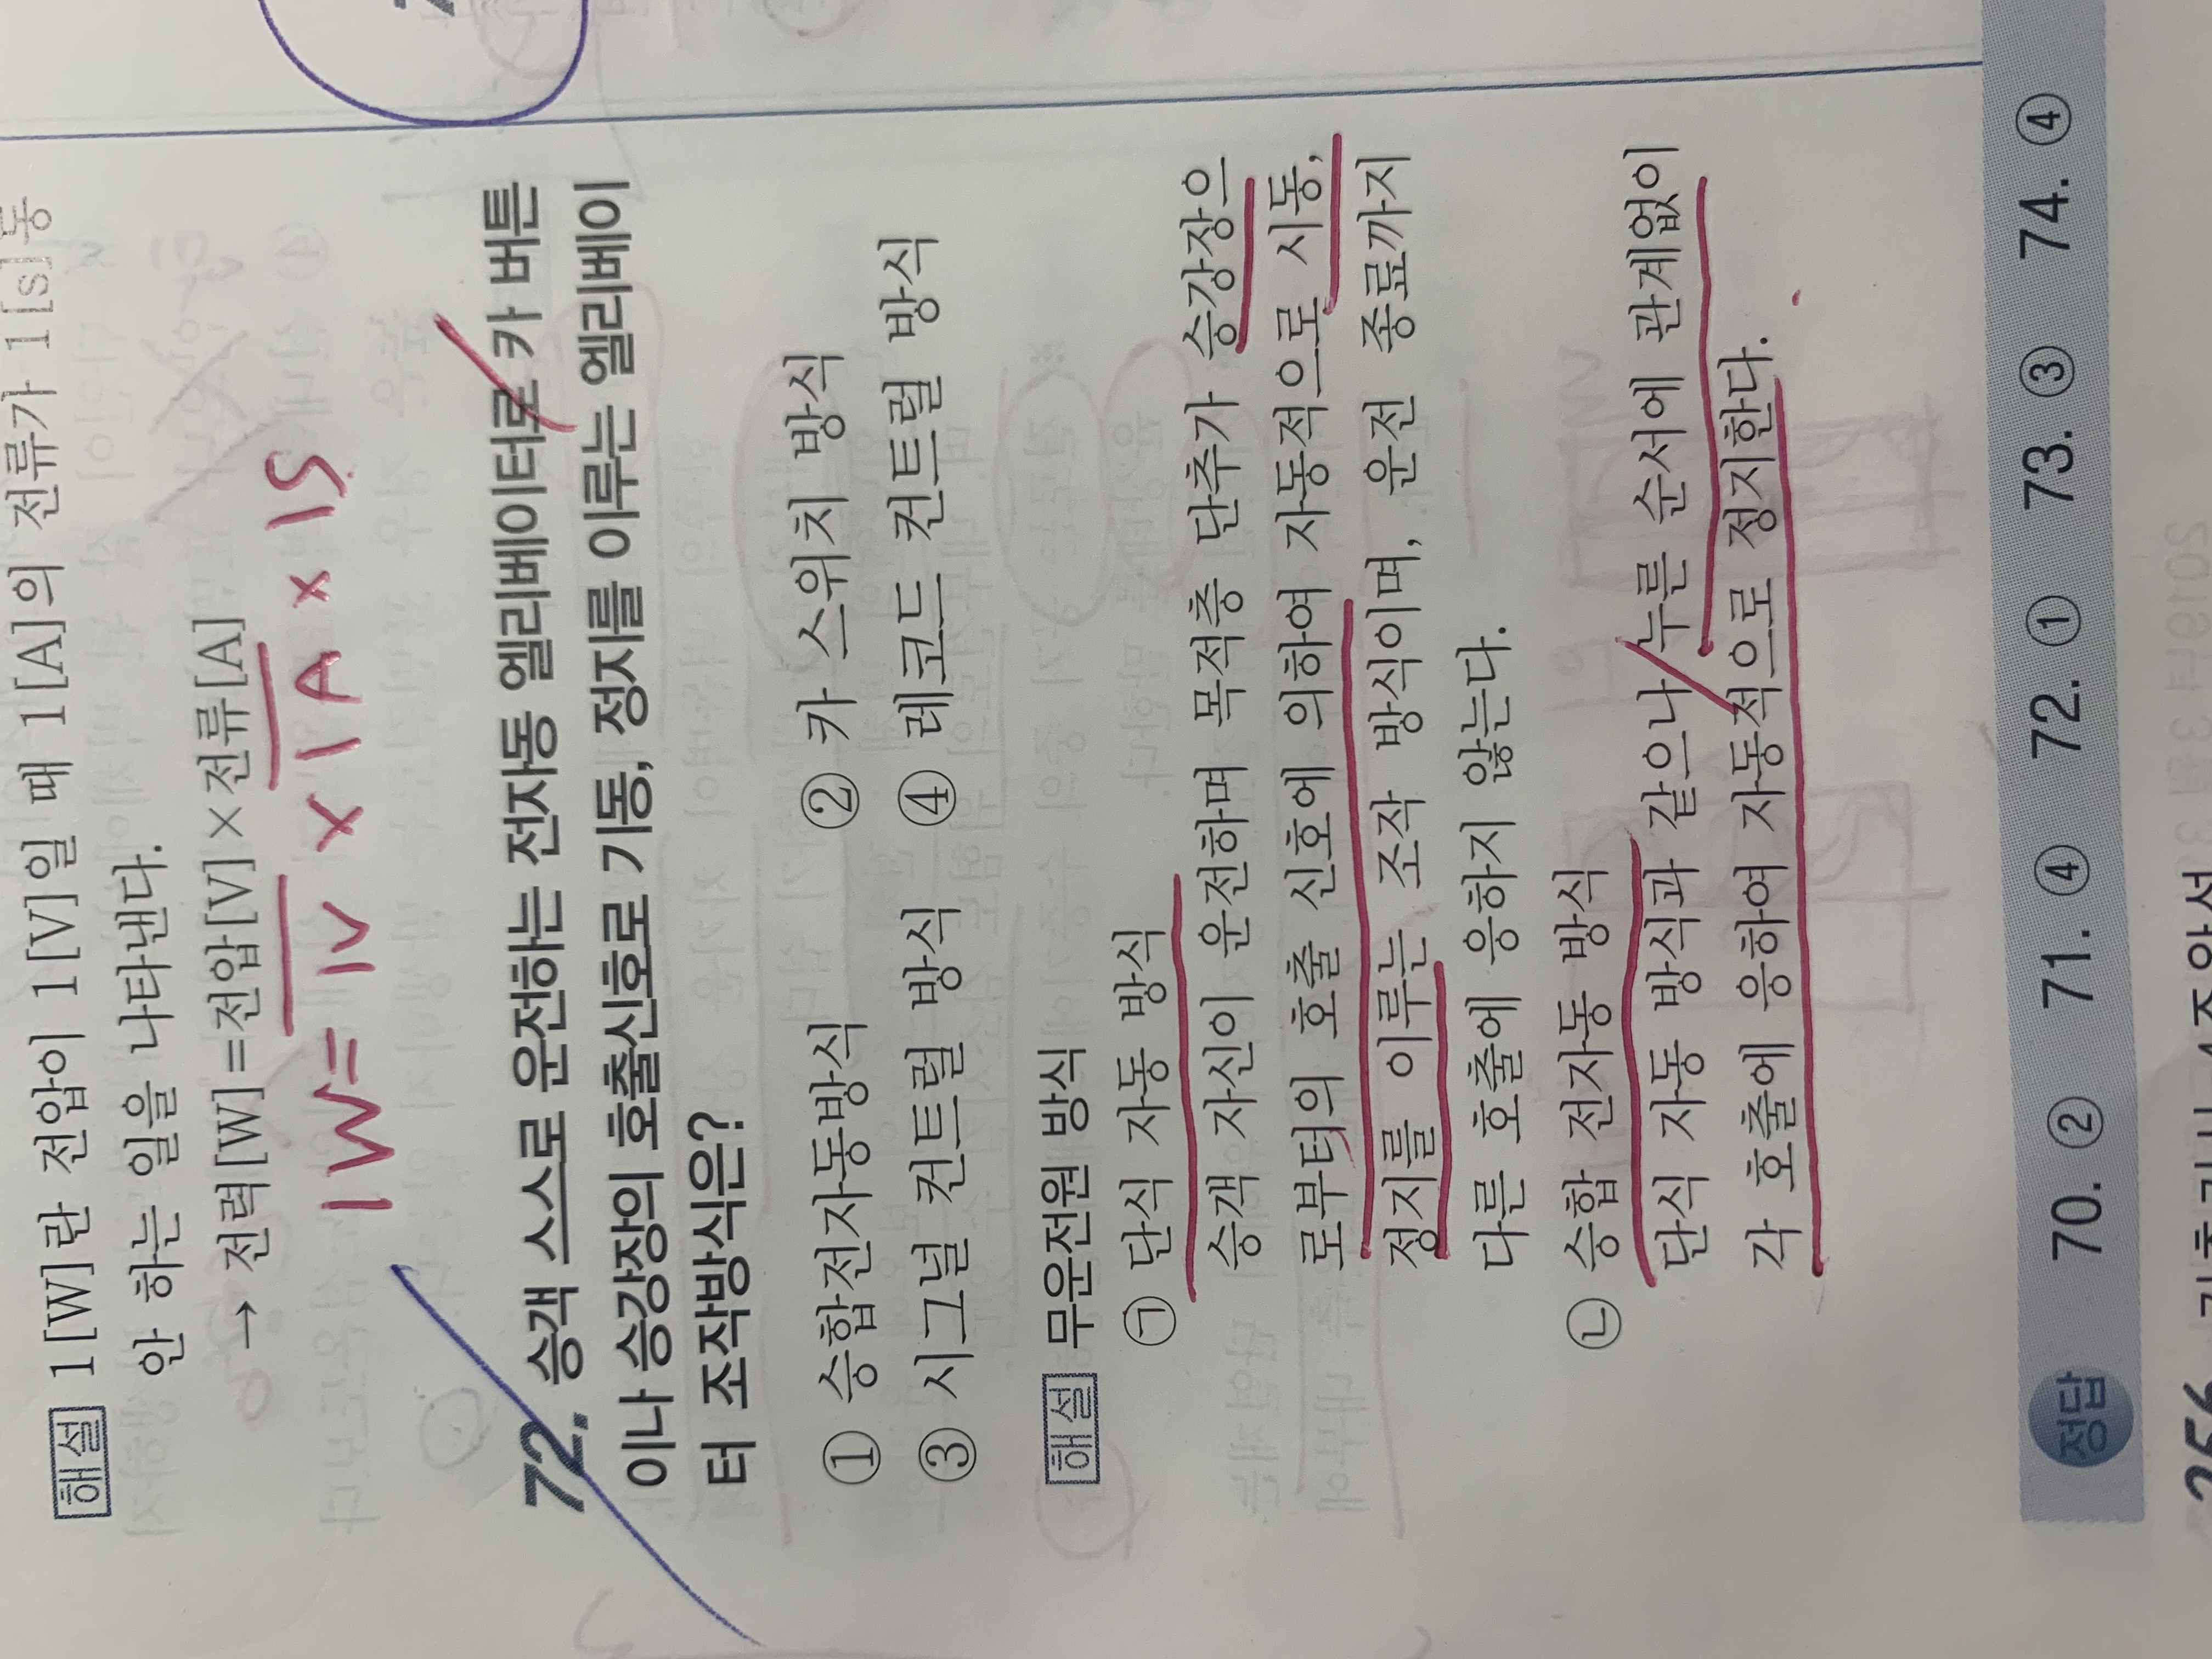 해설 1[W]란 전압이 1[V]일 때 1[A]의 전류가 1[s]동
안 하는 일을 나타낸다.
→ 전력[W]=전압[V]×전류[A]
1W= 1V × 1A × 1S
72. 승객 스스로 운전하는 전자동 엘리베이터로 카 버튼
이나 승강장의 호출신호로 기동, 정지를 이루는 엘리베이
터 조작방식은?
① 승합전자동방식 ② 카 스위치 방식
③ 시그널 컨트럴 방식 ④ 레코드 컨트럴 방식
해설 무운전원 방식
㉠ 단식 자동 방식
승객 자신이 운전하며 목적층 단추가 승강장으
로부터의 호출 신호에 의하여 자동적으로 시동,
정지를 이루는 조작 방식이며, 운전 종료까지
다른 호출에 응하지 않는다.
㉡ 승합 전자동 방식
단식 자동 방식과 같으나 누른 순서에 관계없이
각 호출에 응하여 자동적으로 정지한다.
정답 70. ② 71. ④ 72. ① 73. ③ 74. ④